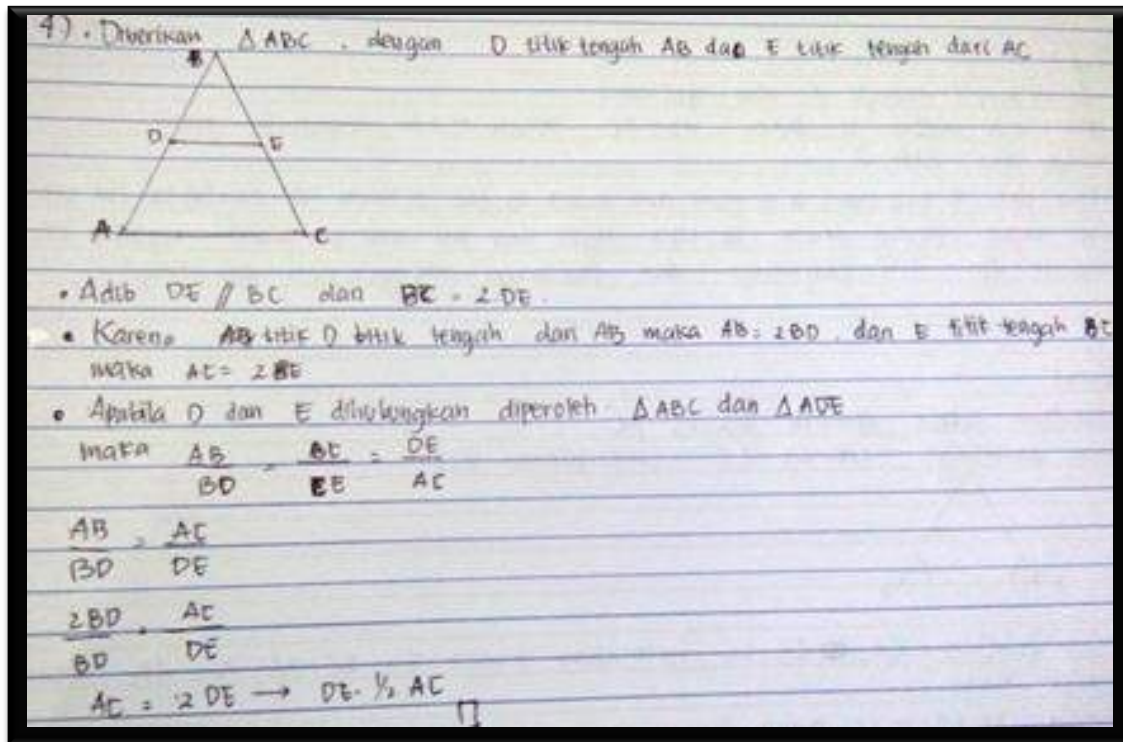 4). Diberikan Δ ABC, dengan D titik tengah AB dan E titik tengah dari AC
B
D E
A C
• Adib DE // BC dan BC = 2 DE.
• Karena AB titik D titik tengah dari AB maka AB = 2BD, dan E titik tengah BC
maka AC = 2 BE
• Apabila D dan E dihubungkan diperoleh Δ ABC dan Δ ADE
maka AB/BD = BC/EE = DE/AC
AB/BD = AC/DE
2BD/BD = AC/DE
AC = 2 DE → DE = 1/2 AC